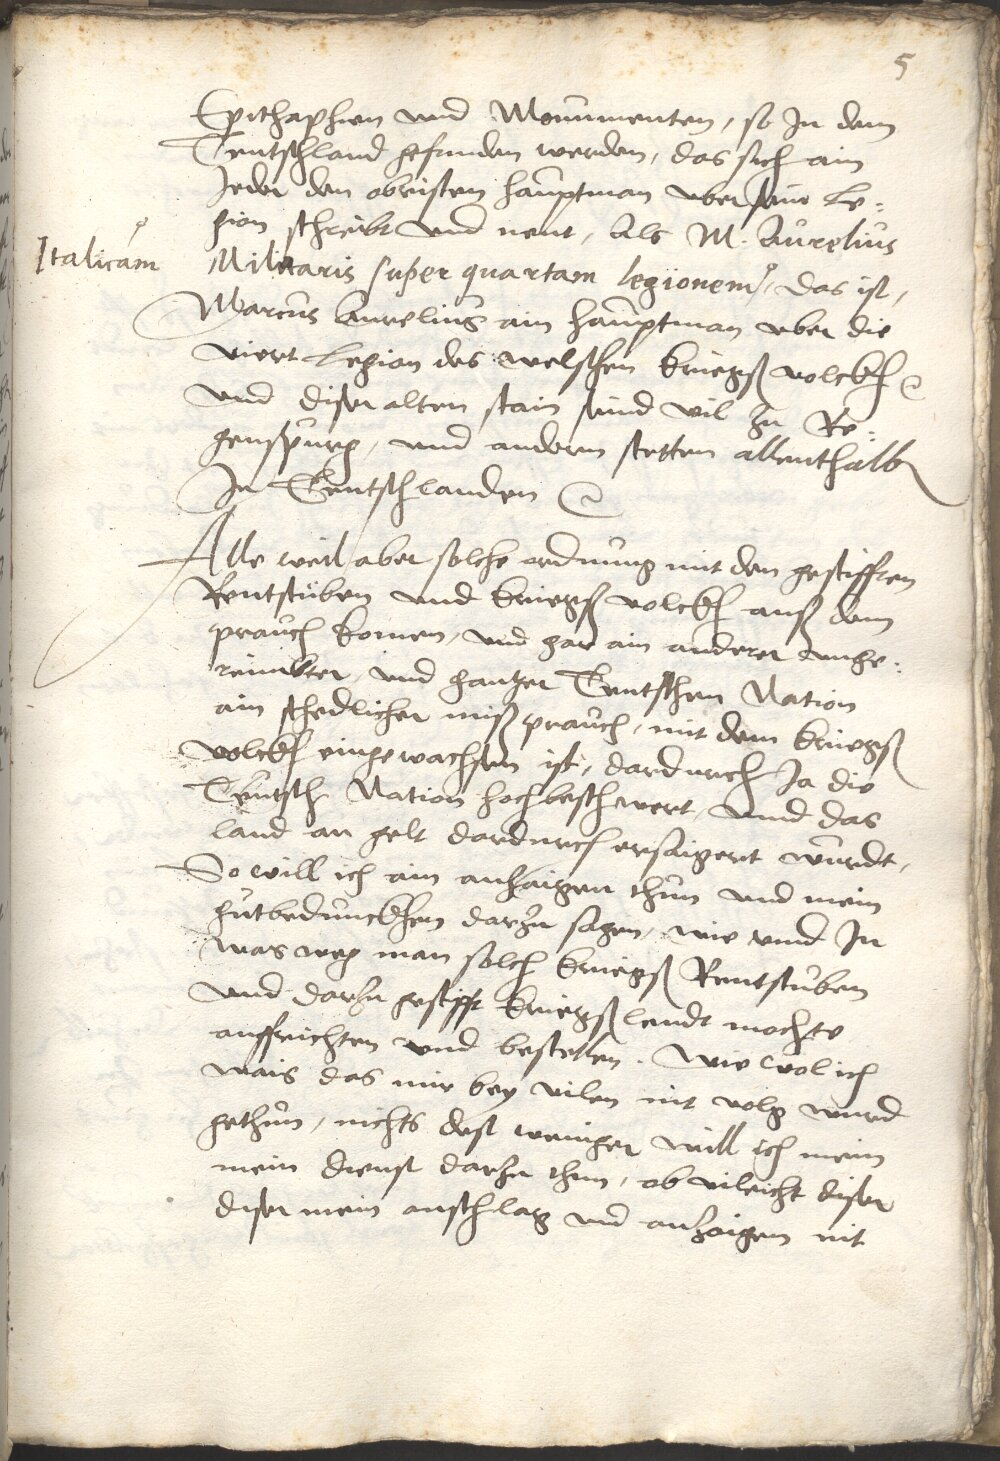 5
Epithaphien und Monumenten, so In dem
Teutschland gefunden werden, das sich ain
Jeder den obristen hauptman uber seine Le:
gion schreibt und nent, Als M. Aurelius
Italicam
Militaris super quartam legionem, das ist,
Marcus Aurelius ain hauptman uber die
viert Legion des welschen kriegß volckhs
und diser alten stain seind vil zu Re:
genspurg, und andern stetten allenthalb
In Teutschlanden
Alle weil aber solche ordnung mit den gestifften
Rentstuben und kriegß volckh auß dem
prauch komen, und gar ain anderer unge:
reimbter, und gantzer Teutschen Nation
ain schedlicher mißprauch, mit dem kriegß
volckh eingewachsen ist, dardurch Ja die
Teutsch Nation hochbeschwert, unnd das
land an gelt dardurch ersaigert wurdt,
So will ich ain anzaigen thun und mein
gutbedunckhen darzu sagen, wie unnd In
was weg man solch kriegß Rentstuben
und darzu gestifft kriegßleudt mochte
auffrichten und bestellen. Wie wol ich
wais das mir bey vilen nit volg wurd
gethun, nichts dest weniger will ich mein
mein dienst darzu thun, ob vileicht diser
diser mein anschlag und anzaigen nit